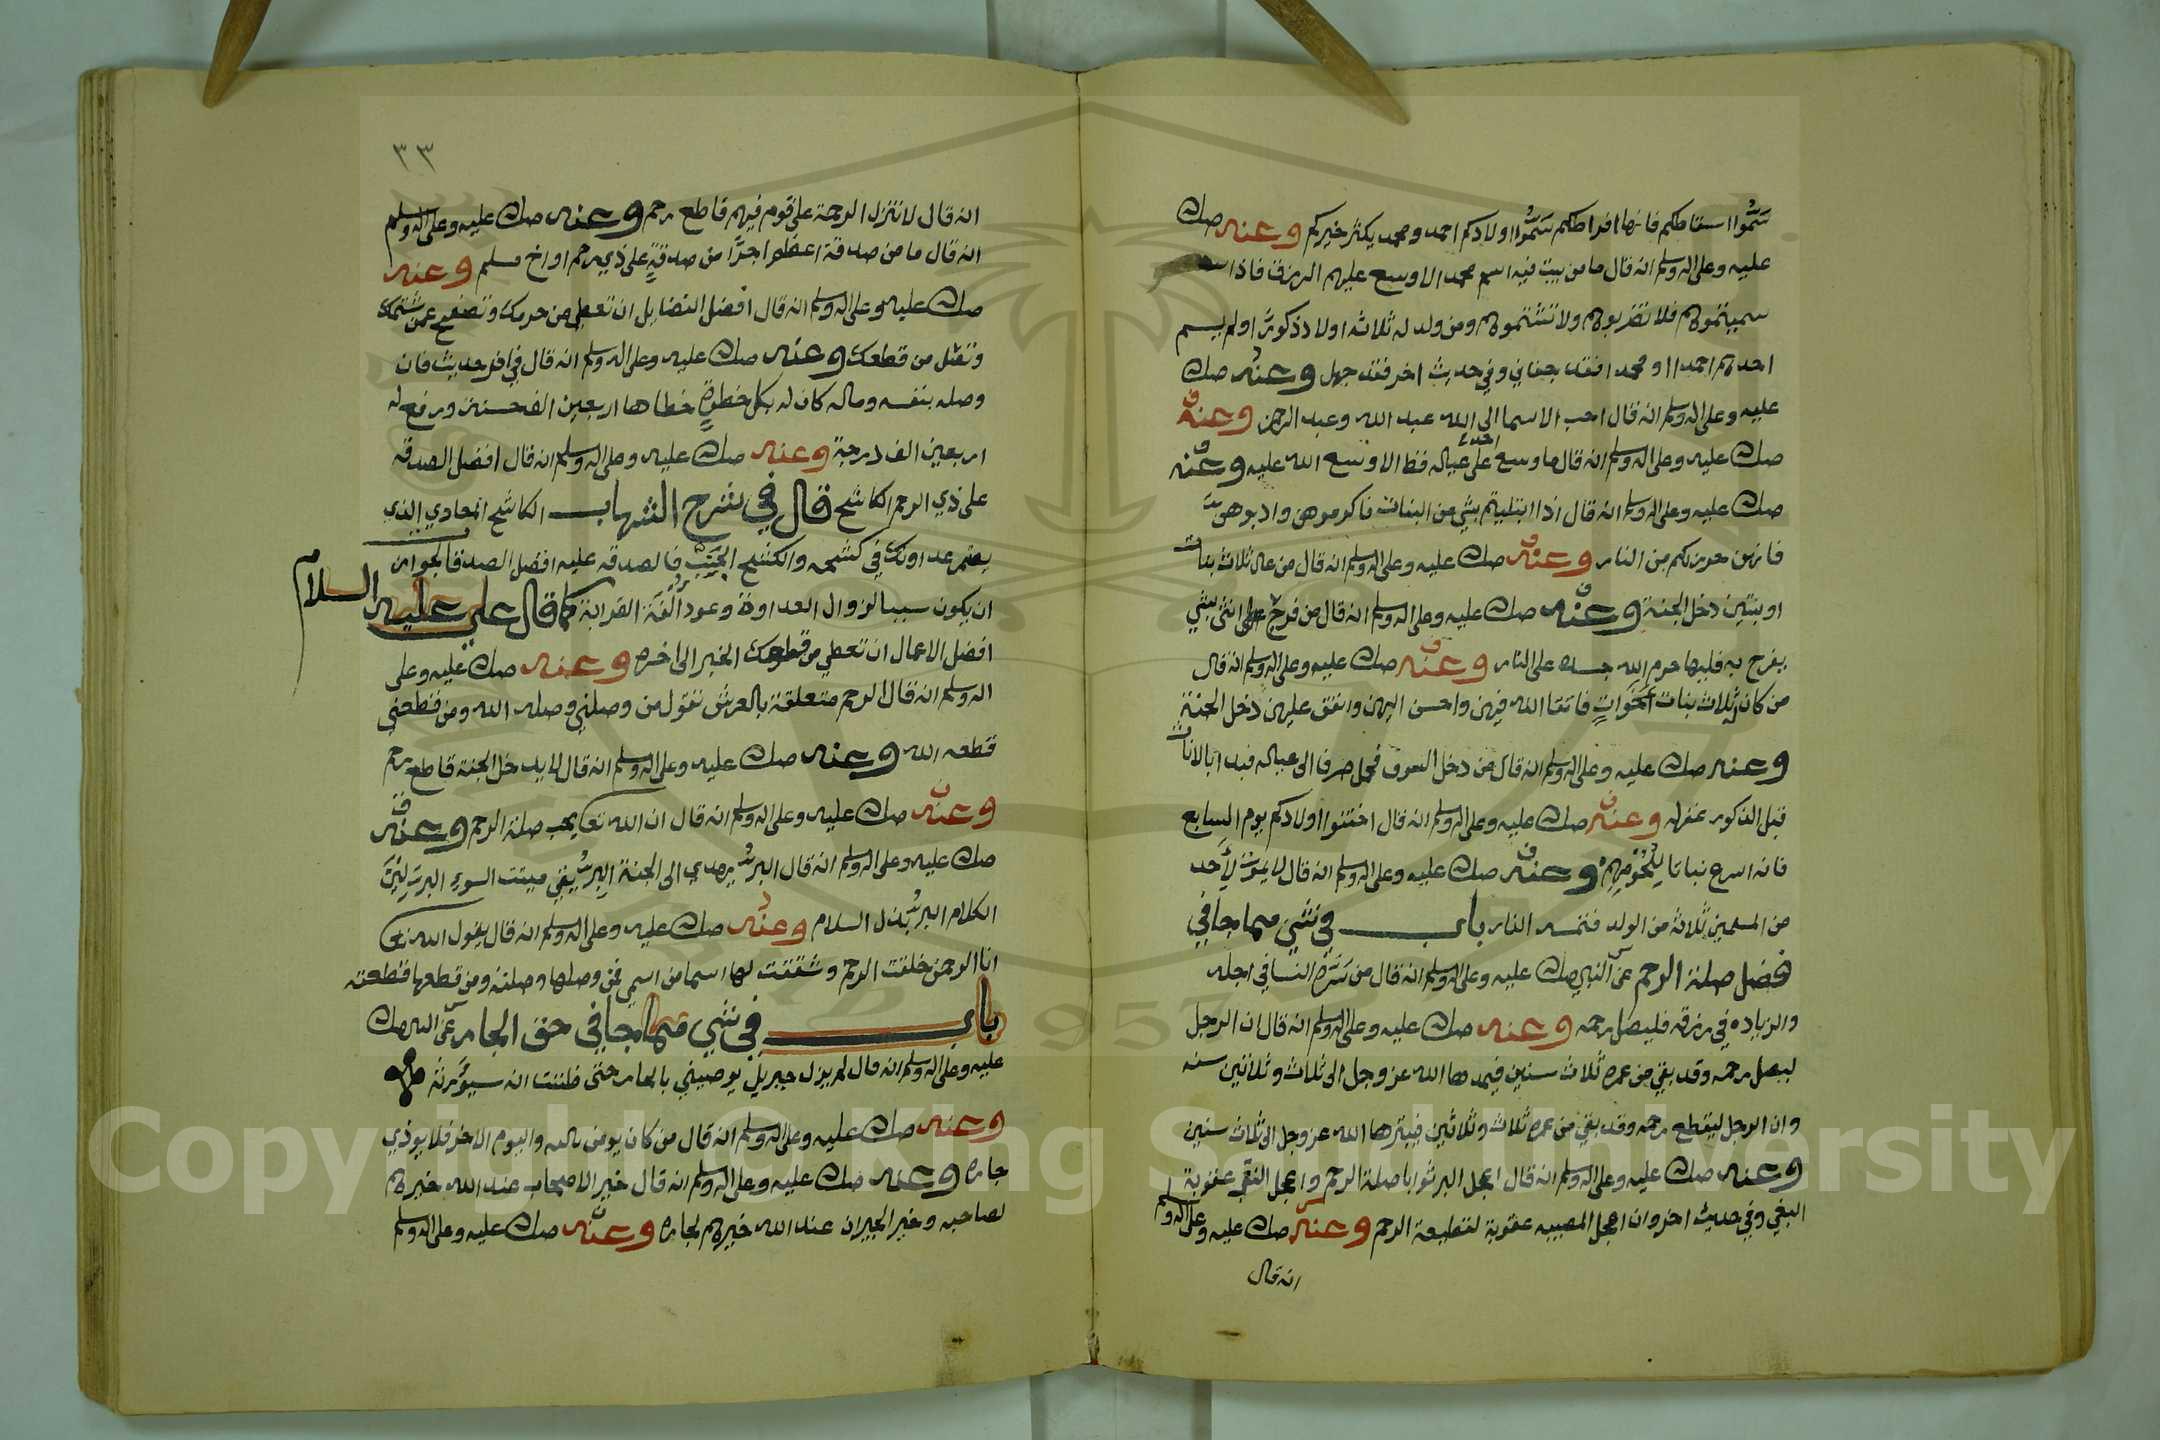 سَمُّوا اسقاطكم فانها افراطكم سَمُّوا اولادكم احمد ومحمد يكثر خيركم وعنه صلى
عليه وعلى اله وسلم انه قال ما من بيت فيه اسم محمد الا وسع عليهم الرزق فاذا
سميتموهم فلا تضربوهم ولا تشتموهم ومن ولد له ثلاثه اولاد ذكورًا ولم يسم
احدهم احمدا او محمدا فقد جفاني وفي حديث اخر فقد جهل وعنه صلى
عليه وعلى اله وسلم انه قال احب الاسما الى الله عبد الله وعبد الرحمن وعنه
صلى عليه وعلى اله وسلم انه قال ما وسع احد على عياله قط الا وسع الله عليه وعنه
صلى عليه وعلى اله وسلم انه قال اذا ابتليتم بشي من البنات فاكرموهن وادبوهن
فانهن حرز لكم من النار وعنه صلى عليه وعلى اله وسلم انه قال من عال ثلاث بنات
او بنتين دخل الجنة وعنه صلى عليه وعلى اله وسلم انه قال من فرح انثى بشي
يفرح به قلبها حرم الله جسده على النار وعنه صلى عليه وعلى اله وسلم انه قال
من كان ثلاث بنات اخوات فاتقا الله فيهن واحسن اليهن وانفق عليهن دخل الجنة
وعنه صلى عليه وعلى اله وسلم انه قال من دخل السوق فحمل طرفا الى عياله فبدا بالاناث
قبل الذكور غفر له وعنه صلى عليه وعلى اله وسلم انه قال اختنوا اولادكم يوم السابع
فانه اسرع نباتا للحومهم وعنه صلى عليه وعلى اله وسلم انه قال لا يموت لأحد
من المسلمين ثلاثة من الولد فتمسه النار باب في شي مما جا في
فضل صلة الرحم عن النبي صلى عليه وعلى اله وسلم انه قال من سَرَّه النسا في اجله
والزياده في رزقه فليصل رحمه وعنه صلى عليه وعلى اله وسلم انه قال ان الرجل
ليصل رحمه وقد بقي من عمره ثلاث سنين فيمدها الله عز وجل الى ثلاث وثلاثين سنه
وان الرجل ليقطع رحمه وقد بقي من عمره ثلاث وثلاثين فيبترها الله عز وجل الى ثلاث سنين
وعنه صلى عليه وعلى اله وسلم انه قال اعجل البر ثوابا صلة الرحم واعجل عقوبة
البغي وفي حديث اخر وان اعجل المصيبه عقوبة لقطيعة الرحم وعنه صلى عليه وعلى اله وسلم
انه قال
٣٣
انه قال لا تنزل الرحمة على قوم فيهم قاطع رحم وعنه صلى عليه وعلى اله وسلم
انه قال ما من صدقة اعظم اجرًا من صدقةٍ على ذي رحم او اخ مسلم وعنه
صلى عليه وعلى اله وسلم انه قال افضل الفضايل ان تعطي من حرمك وتصفح عمن شتمك
وتصل من قطعك وعنه صلى عليه وعلى اله وسلم انه قال في اخر حديث فان
وصله بنفسه وماله كان له بكل خطوةٍ خطاها اربعين الف حسنه ورفع له
اربعين الف درجة وعنه صلى عليه وعلى اله وسلم انه قال افضل الصدقه
على ذي الرحم الكاشح قال في شرح الشهاب الكاشح المعادي الذي
يضمر عداوتك في كشحه والكشح الجَنَب فالصدقه عليه افضل الصدقه لجواز
ان يكون سببا لزوال العداوة وعود اُلْفَة القرابة كما قال علي عليه السلام
افضل الاعمال ان تعطي من قطعك الخبر الى اخره وعنه صلى عليه وعلى
اله وسلم انه قال الرحم متعلقة بالعرش تقول من وصلني وصله الله ومن قطعني
قطعه الله وعنه صلى عليه وعلى اله وسلم انه قال لا يدخل الجنة قاطع رحم
وعنه صلى عليه وعلى اله وسلم انه قال ان الله تعالى يحب صلة الرحم وعنه
صلى عليه وعلى اله وسلم انه قال البر يهدي الى الجنة البر يقي ميتت السوء البر لين
الكلام البر بذل السلام وعنه صلى عليه وعلى اله وسلم انه قال يقول الله تعالى
انا الرحمن خلقت الرحم وشققت لها اسما من اسمي فمن وصلها وصلته ومن قطعها قطعته
باب في شي مما جا في حق الجار عن النبي صلى
عليه وعلى اله وسلم انه قال لم يزل جبريل يوصيني بالجار حتى ظننت انه سيوَرثه
وعنه صلى عليه وعلى اله وسلم انه قال من كان يومن بالله واليوم الاخر فلا يوذي
جاره وعنه صلى عليه وعلى اله وسلم انه قال خير الاصحاب عند الله خيرهم
لصاحبه وخير الجيران عند الله خيرهم لجاره وعنه صلى عليه وعلى اله وسلم
Copyright © King Saud University
1957